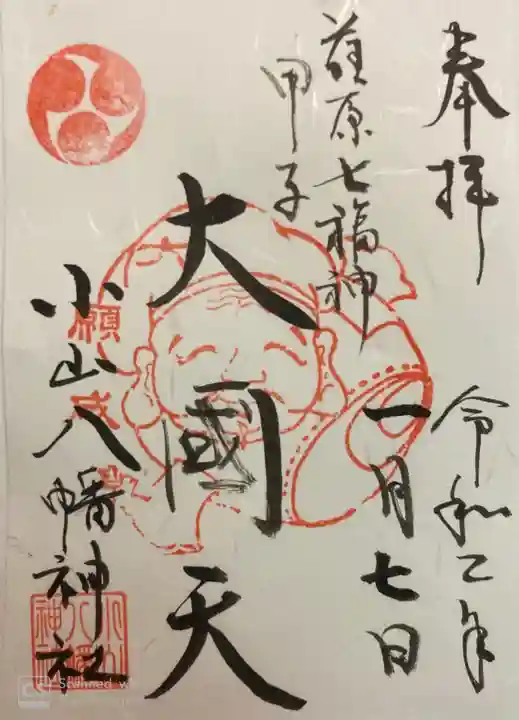 奉拝
令和二年
一月七日
荏原七福神
甲子
大國天
小山八幡神社
願
成
CS Scanned w